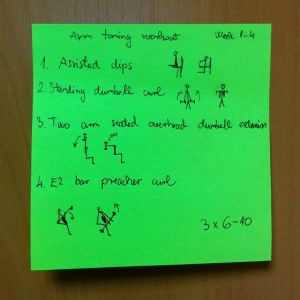 Arm toning workout Week 1-4
1. Assisted dips
2. Standing dumbell curl
3. Two arm seated overhead dumbell extension
4. EZ bar preacher curl
3 x 6-10